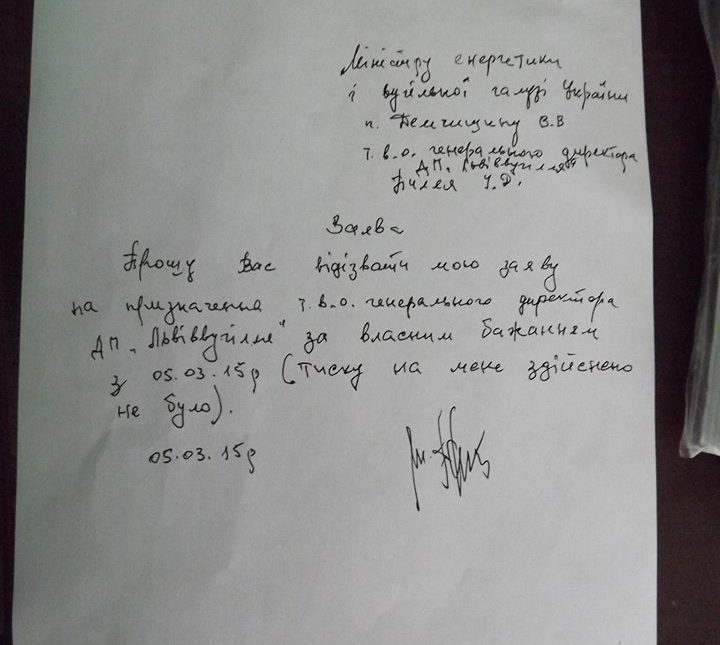 Міністру енергетики
і вугільної галузі України
п. Демчишину В.В
т.в.о. генерального директора
ДП „Львіввугілля"
І.Д.
Заява
Прошу Вас відізвати мою заяву
на призначення т.в.о. генерального директора
ДП „Львіввугілля" за власним бажанням
з 05.03.15р (тиску на мене здійснено
не було).
05.03.15р